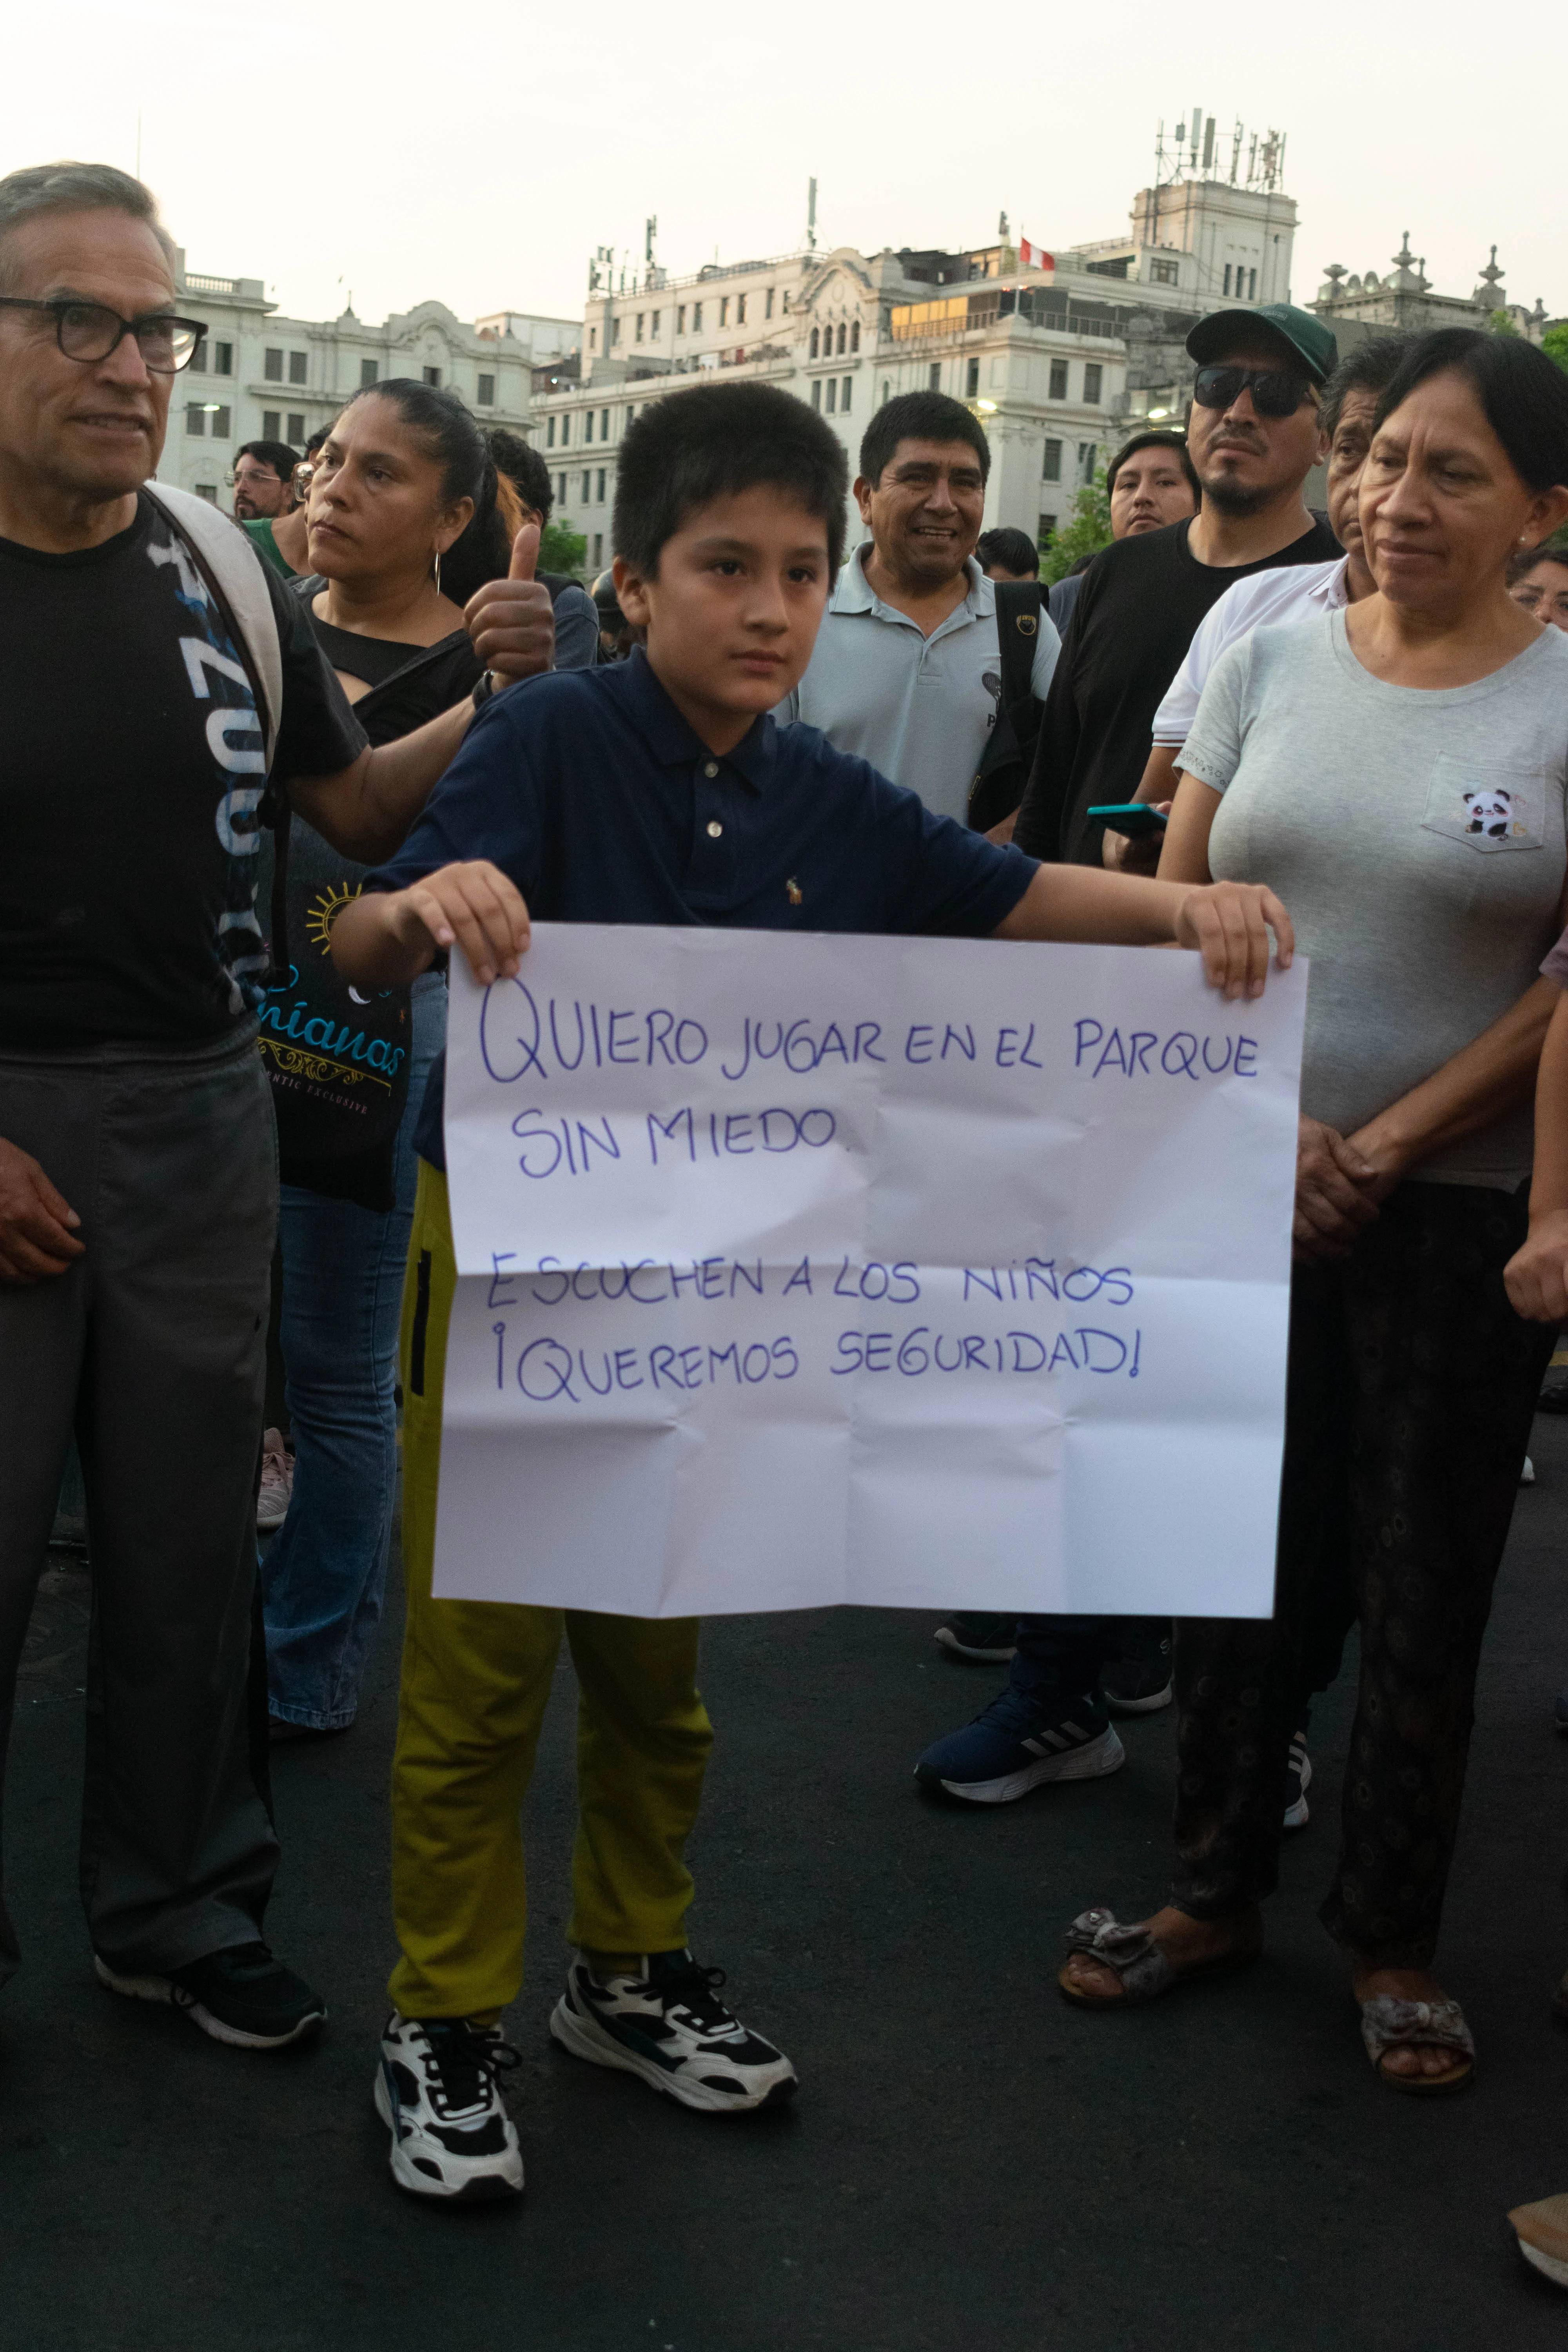 QUIERO JUGAR EN EL PARQUE
SIN MIEDO.
ESCUCHEN A LOS NIÑOS
¡QUEREMOS SEGURIDAD!